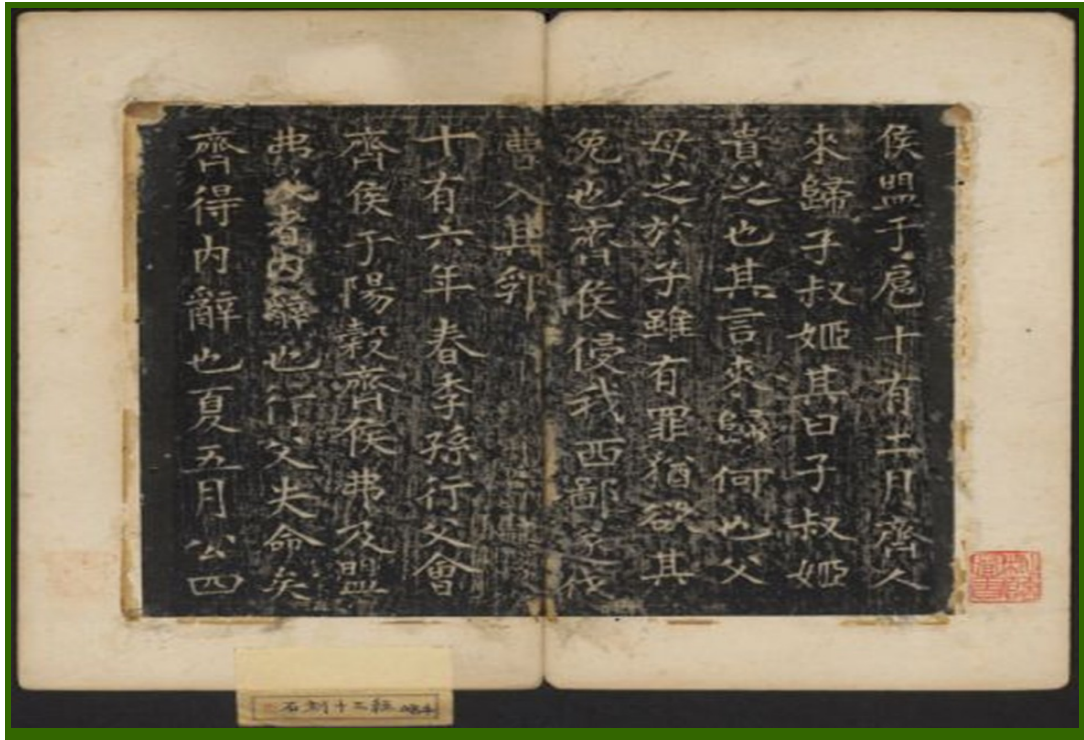 侯盟于扈十有二月齊人
來歸子叔姬其曰子叔姬
貴之也其言來歸何也父
母之於子雖有罪猶欲其
免也齊侯侵我西鄙遂伐
曹入其郛
十有六年春季孫行父會
齊侯于陽穀齊侯弗及盟
弗及者内辭也行父失命矣
齊得内辭也夏五月公四
石刻十三經